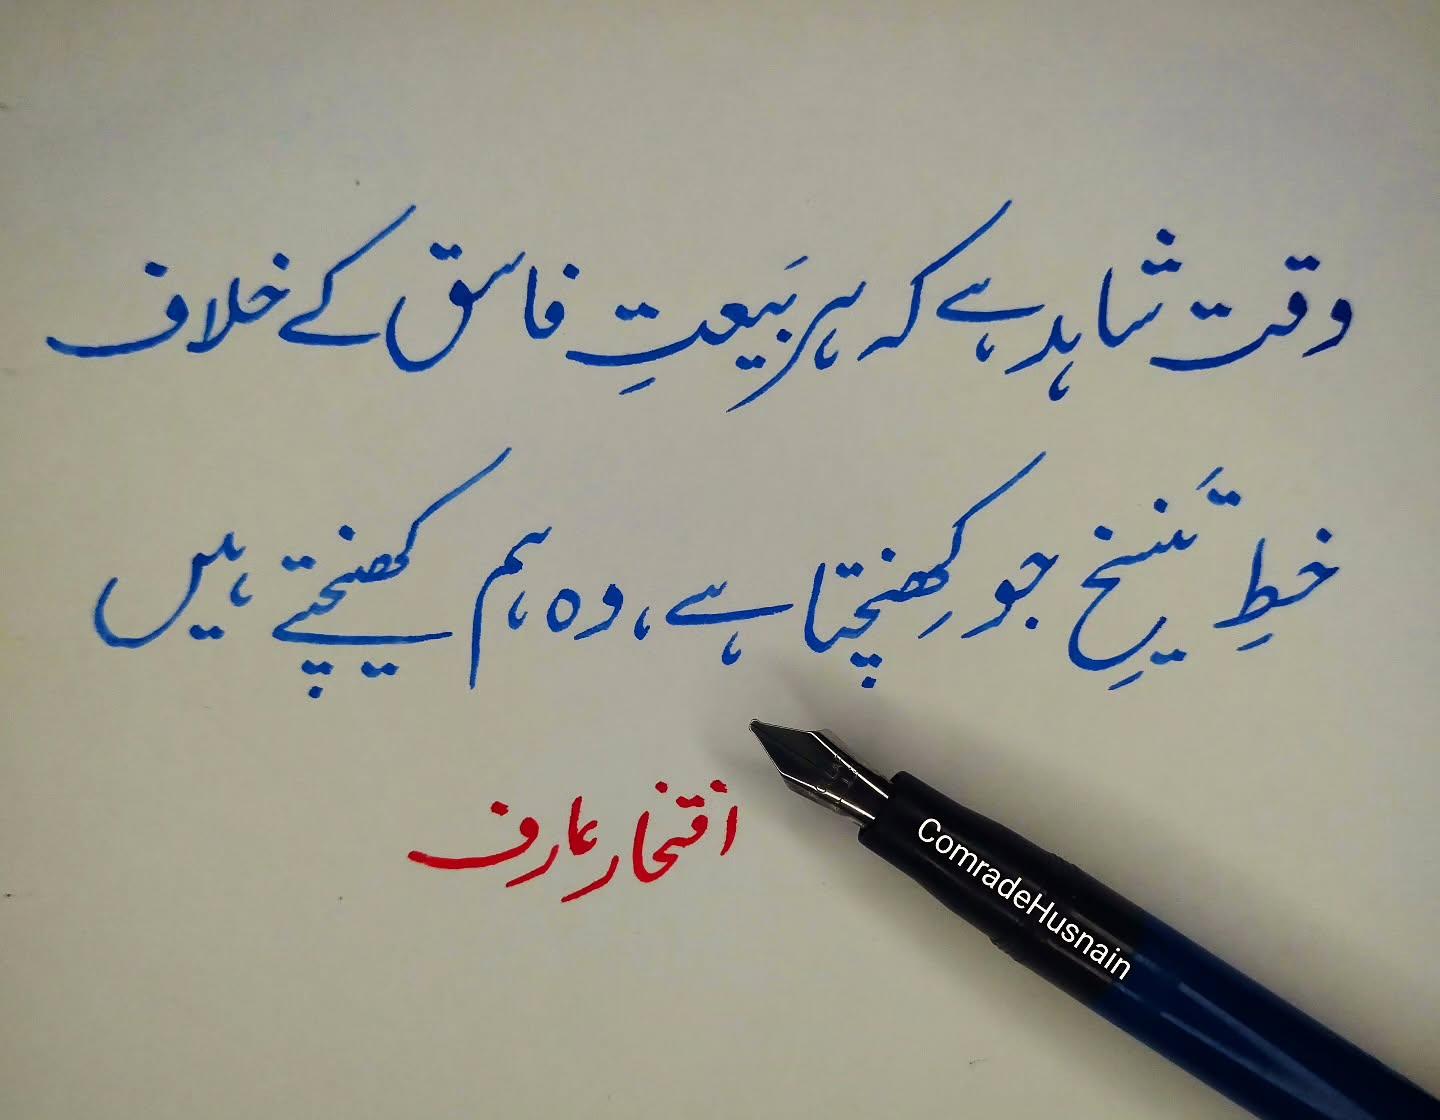 وقت شاہد ہے کہ ہر بَیعتِ فاسق کے خلاف
خطِ تَنسیخِ جو کِھنچتا ہے، وہ ہم کھینچتے ہیں
افتخار عارف
ComradeHusnain